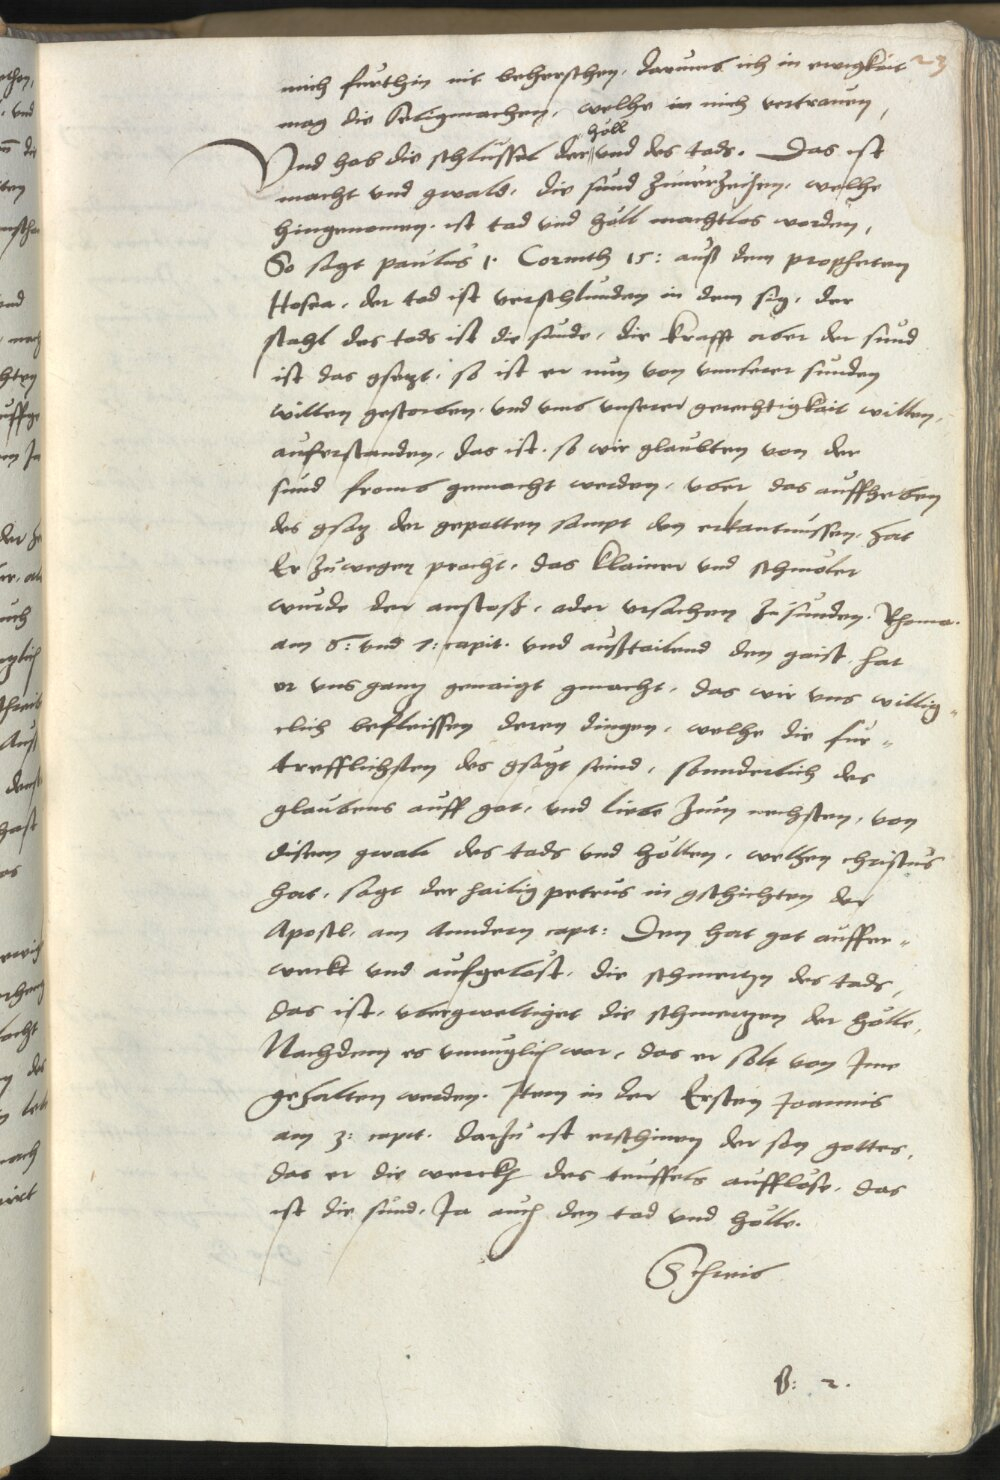 23
mich furthin nit beherschen, darumb ich in ewigkait
mag die seligmachen, welhe in mich vertrauen,
höll
Vnd hab die schlüssel der vnd des tods. Das ist
macht vnd gwald, die sünd zuuerzeihen, welhe
hingenomen, ist tod vnd höll machtlos worden,
So sagt paulus 1. Corinth 15: auß dem propheten
Hosea, der tod ist verschlunden in dem sig, der
stahl des tods ist die sünde, die krafft aber der sünd
ist das gsetzt, so ist er nun von vnnserer sunden
willen gestorben, vnd vmb vnserer gerechtigkait willen,
auferstanden, das ist, so wir glaubten von der
sünd fromb gemacht werden, vber das auffheben
des gsatz der gepotten sampt den erkantnussen, hat
Er zuwegen pracht, das klainer vnd schmöler
wurde der anstoß, oder vrsachen zu sunden. Rhoma.
am 6: vnd 7: capit. vnd außtailend den gaist, hat
er vns gantz genaigt gmacht, das wir vns willig„
clich befleissen deren dingen, welhe die für„
trefflichsten des gsatzt seind, sonderlich des
glaubens auff got, vnd liebe zum nechsten, von
disem gwalt des tods vnd höllen, welhen christus
hat, sagt der hailig petrus in gschichten der
Apostl, am Anndern capt: Den hat got auffer„
weckt vnd aufgelöst, die schmertzn des tods,
das ist, vbergweltiget die schmertzen der hölle,
Nachdem es vnmuglich war, das er solt von Jme
gehalten werden. Jtem in der Ersten Joannis
am 3: capit. darzu ist erschinen der son gottes,
das er die werckh des teuffels aufflöse, das
ist die sünd, Ja auch den tod vnd hölle.
Schreib
B: 2.